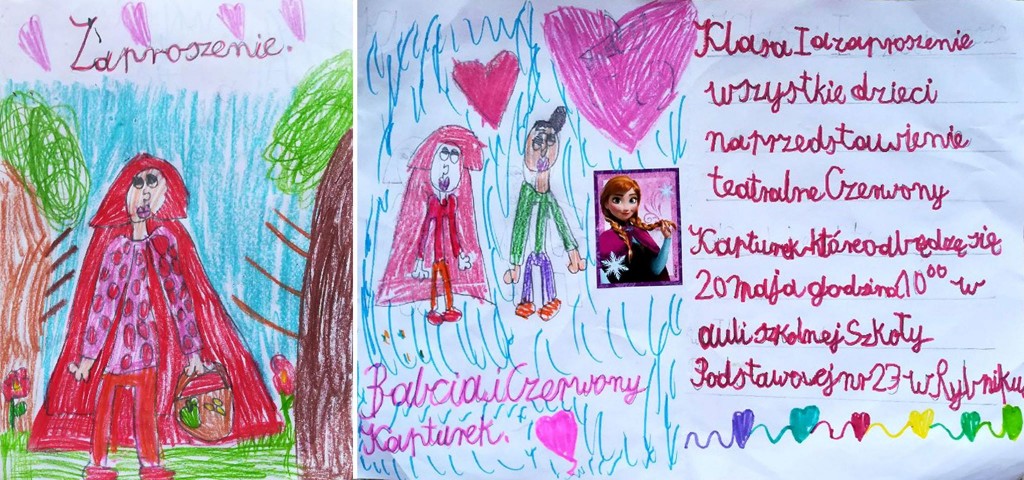 Zaproszenie.
Babcia i Czerwony
Kapturek.
Klasa I a zaproszenie
wszystkie dzieci
na przedstawienie
teatralne Czerwony
Kapturek które odbędzę się
20 maja godzina 10⁰⁰ w
auli szkolnej Szkoły
Podstawowej nr 23 w Rybniku